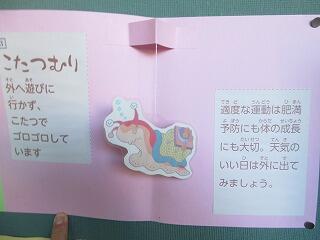 こたつむり
外へ遊びに
行かず、
こたつで
ゴロゴロして
います
適度な運動は肥満
予防にも体の成長
にも大切。天気の
いい日は外に出て
みましょう。